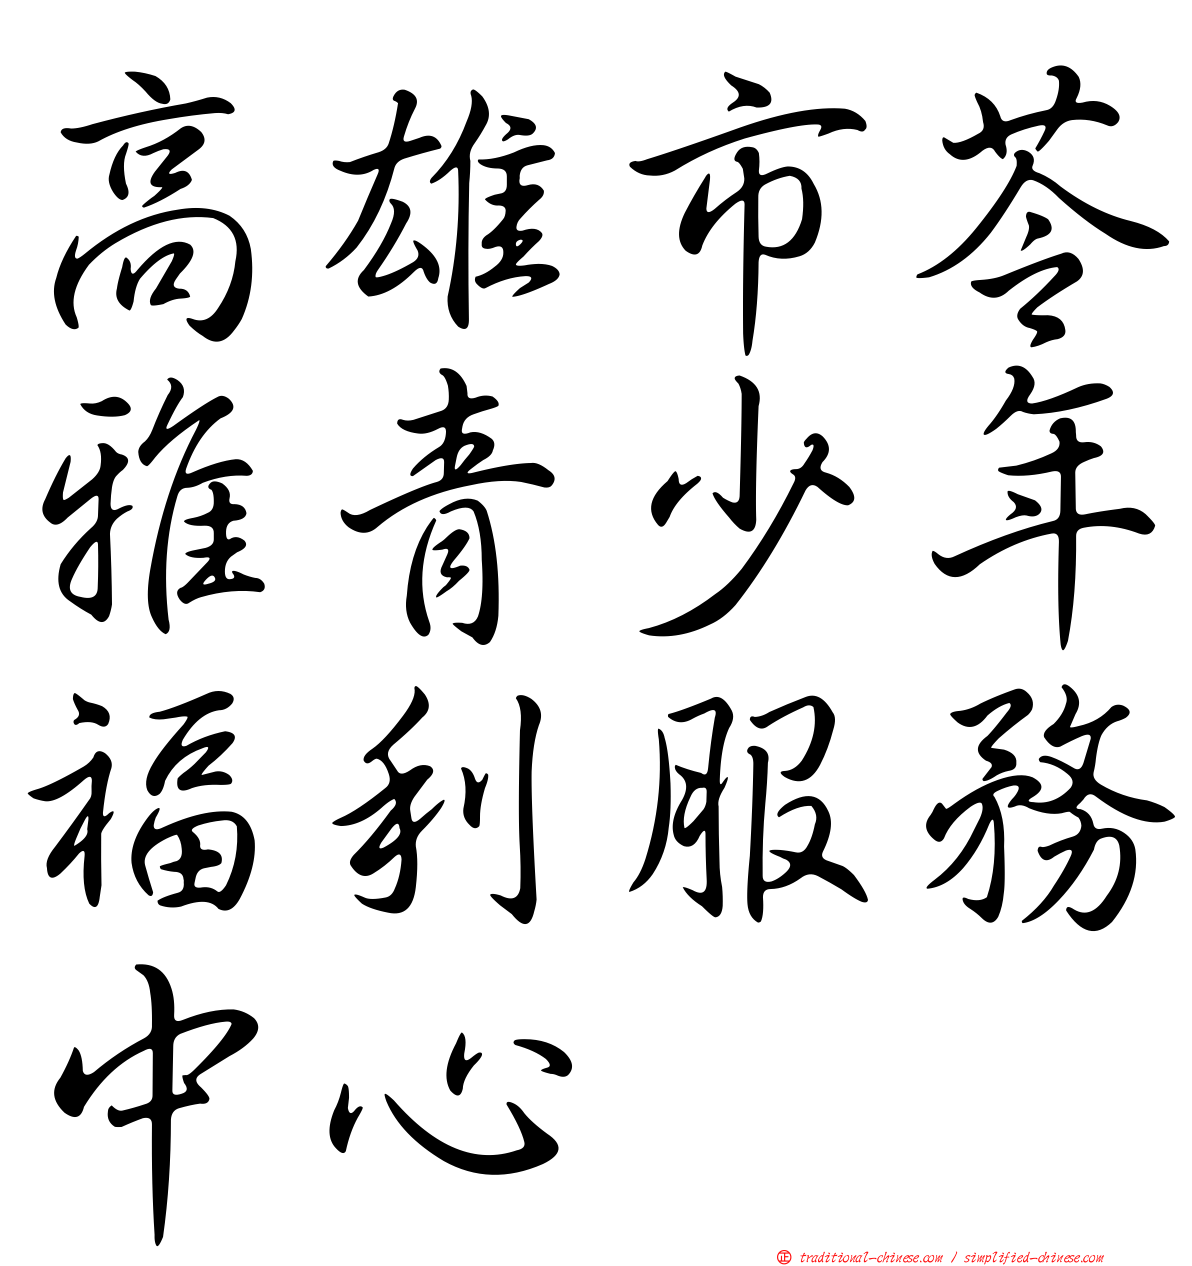 高雄市苓
雅青少年
福利服務
中心
正 traditional-chinese.com / simplified-chinese.com